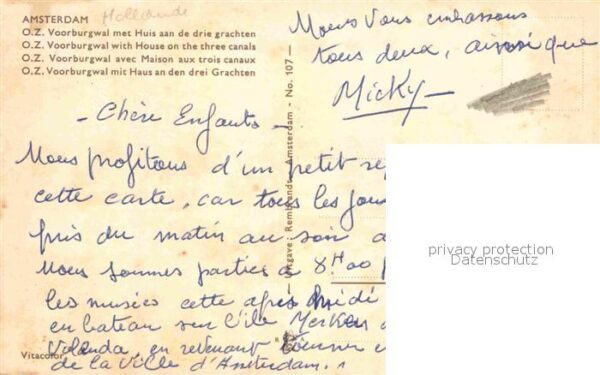 AMSTERDAM Hollande
O.Z. Voorburgwal met Huis aan de drie grachten
O.Z. Voorburgwal with House on the three canals
O.Z. Voorburgwal avec Maison aux trois canaux
O.Z. Voorburgwal mit Haus an den drei Grachten
Nous Vous embrassons
tous deux, ainsi que
Micky -
- Chère Enfants -
Nous profitons d'un petit
cette carte, car tous les
pris du matin au soir
Nous sommes parties à 8H00
les musées cette après midi
en bateau sur l'ile
en revenant
de la Ville d'Amsterdam.
Vitacolor
Uitgave: Rembrandt - Amsterdam - No. 107 -
privacy protection
Datenschutz